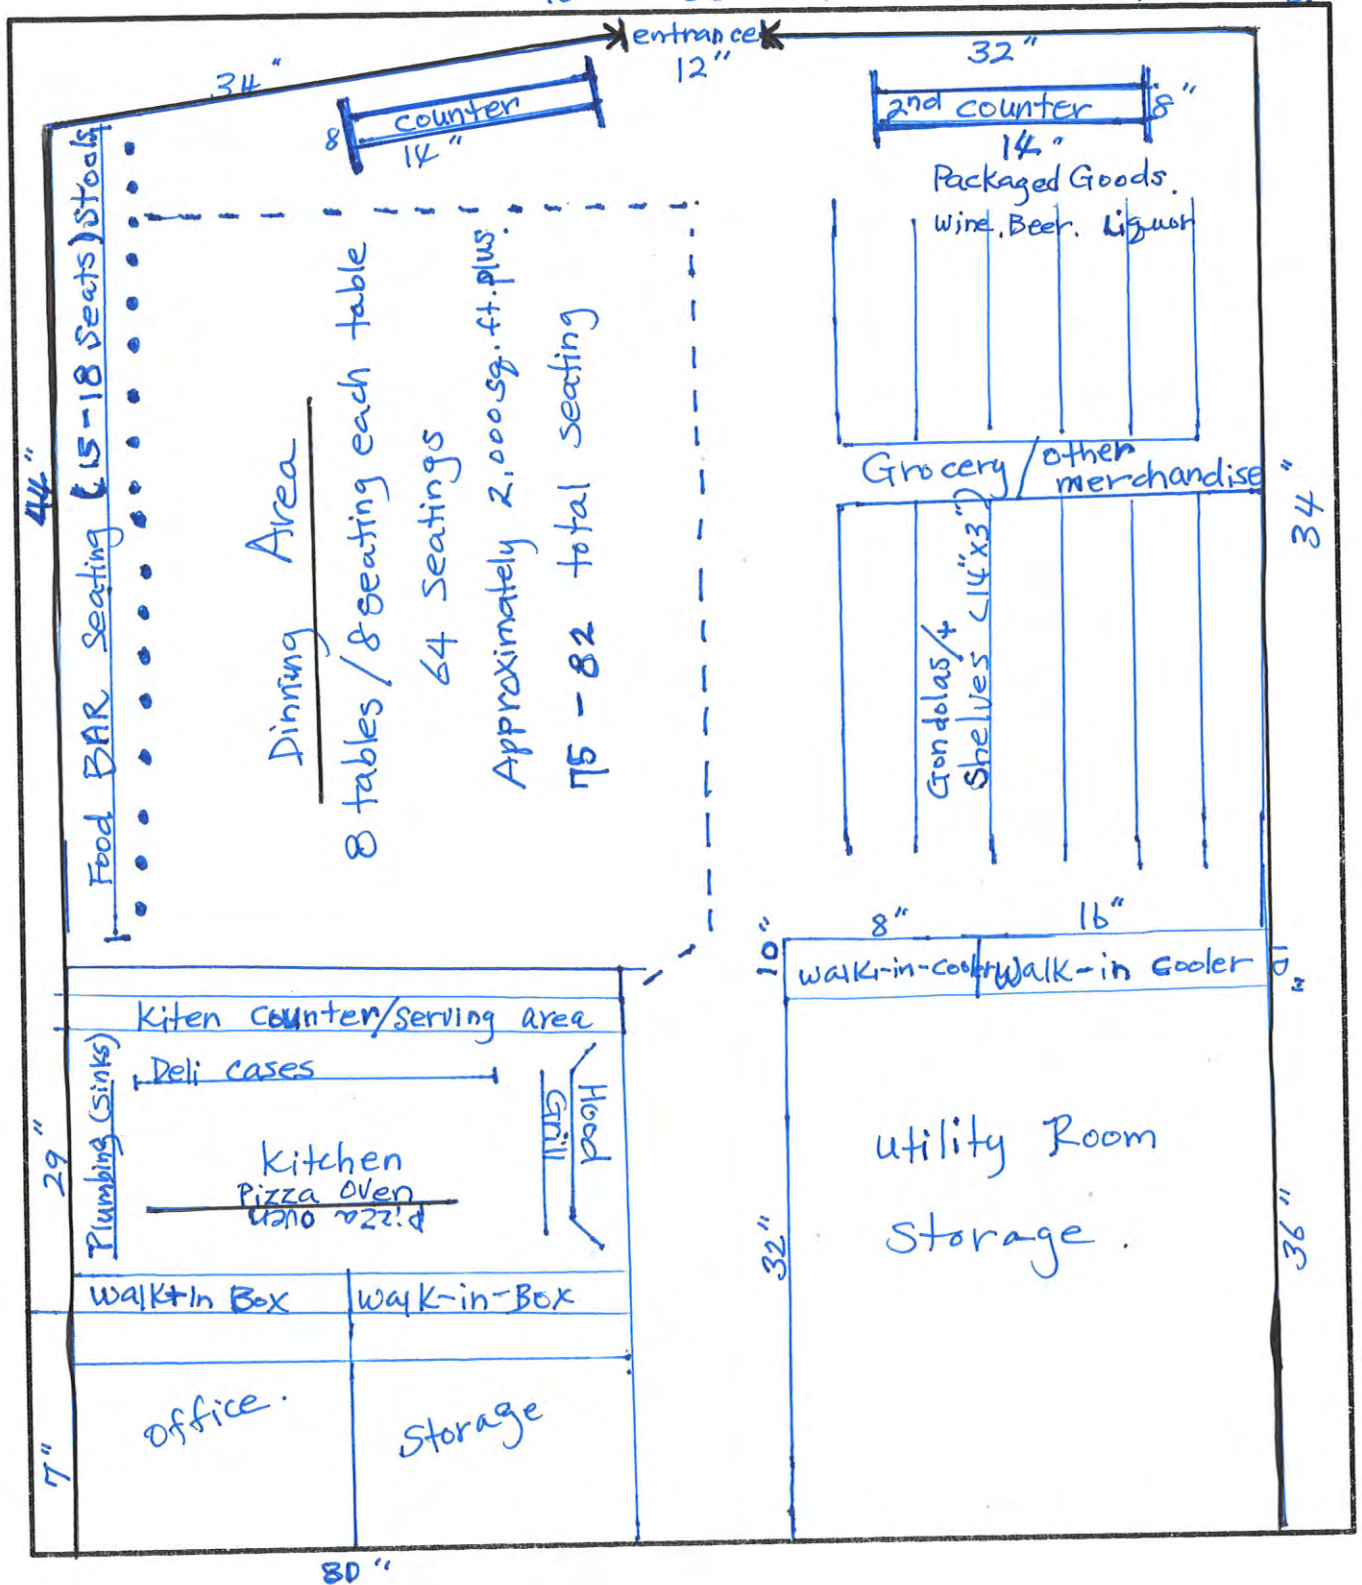 entrance
12"
34"
32"
counter
8
14"
2nd counter
8"
14"
Packaged Goods.
Wine. Beer. Liquor
Food BAR Seating (15-18 Seats) Stools
44"
Dinning Area
8 tables / 8 seating each table
64 seatings
Approximately 2,000 sq. ft. plus.
75 - 82 total seating
Grocery / other
merchandise
34"
Gondolas/+
Shelves (14"x3")
8"
16"
10"
walk-in-cooler
Walk-in Cooler
10"
Kiten counter/serving area
Deli cases
Plumbing (sinks)
Hood
Grill
29"
Kitchen
Pizza Oven
Pizza oven
Walk-In Box
Walk-in-Box
Utility Room
Storage.
32"
36"
Office.
Storage
7"
80"